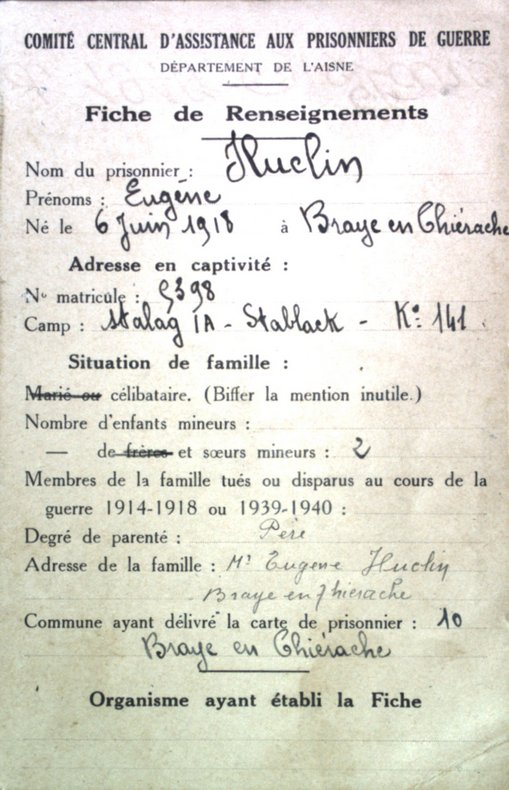 COMITÉ CENTRAL D'ASSISTANCE AUX PRISONNIERS DE GUERRE
DÉPARTEMENT DE L'AISNE
Fiche de Renseignements
Nom du prisonnier : Huclin
Prénoms : Eugène
Né le 6 Juin 1918 à Braye en Thiérache
Adresse en captivité :
No matricule : 5398
Camp : Stalag IA - Stablack - Ko: 141
Situation de famille :
Marié ou célibataire. (Biffer la mention inutile.)
Nombre d'enfants mineurs :
— de frères et sœurs mineurs : 2
Membres de la famille tués ou disparus au cours de la
guerre 1914-1918 ou 1939-1940 :
Degré de parenté : Père
Adresse de la famille : Mr Eugène Huclin
Braye en Thierache
Commune ayant délivré la carte de prisonnier : 10
Braye en Thiérache
Organisme ayant établi la Fiche